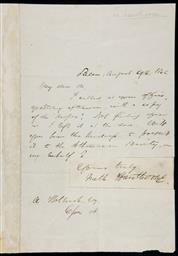 Salem, August 29th, 184
My dear Sir
I called at your office,
yesterday afternoon with a copy
of the             Not finding you
in, I left it at the        Will
you have the kindness to present
it to the Athenaeum Society, on
my behalf?
Yours truly,
Nath Hawthorne
A.            Esq.